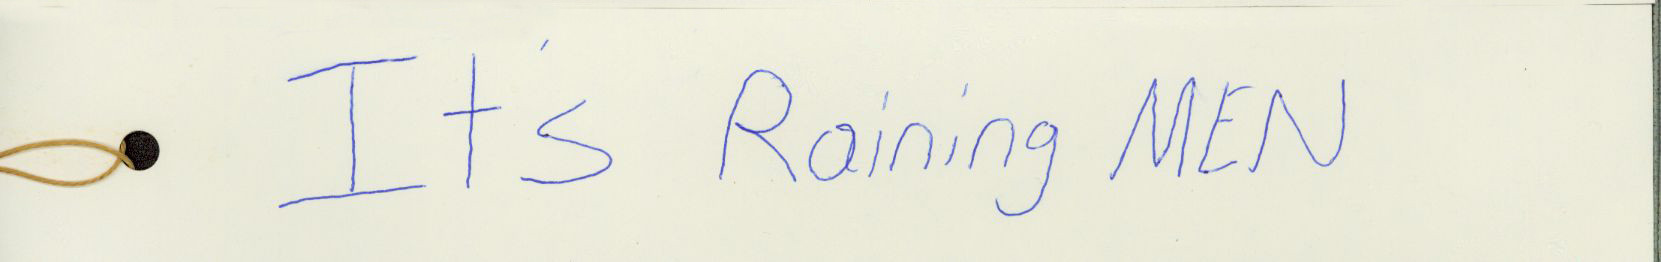 It's Raining MEN